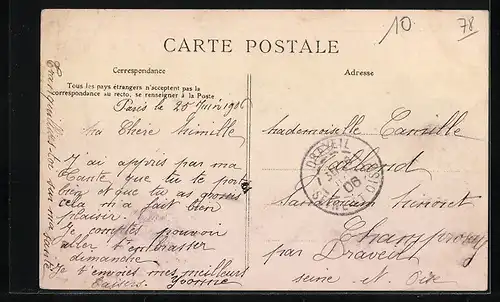 10
78
CARTE POSTALE
Correspondance
Adresse
Tous les pays étrangers n'acceptent pas la
correspondance au recto, se renseigner à la Poste
Paris le 28 Juin 1906
Ma Chère Mimille
J'ai appris par ma
Tante que tu te portes
bien et que tu as
cela m'a fait bien
plaisir.
Je comptes pouvoir
aller t'embrasser
dimanche
Je t'envoies mes meilleurs
baisers. Yvonne
Tranquillises-toi sur ma santé
Mademoiselle Camille
DRAVEIL
06
Champrosay
par Draveil
Seine et Oise